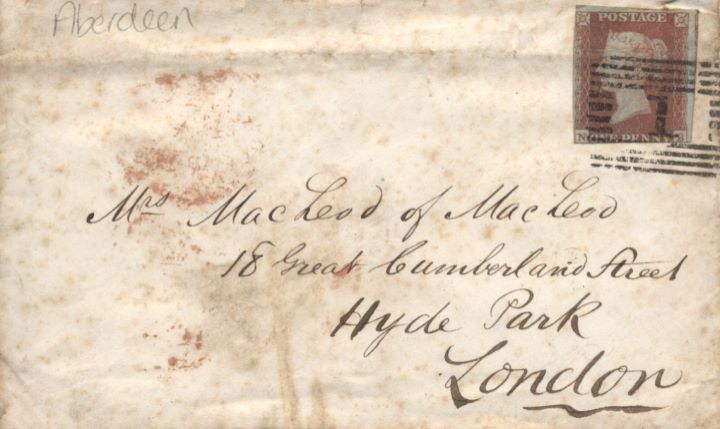 Aberdeen
POSTAGE
ONE PENNY
Mrs MacLeod of MacLeod
18 Great Cumberland Street
Hyde Park
London